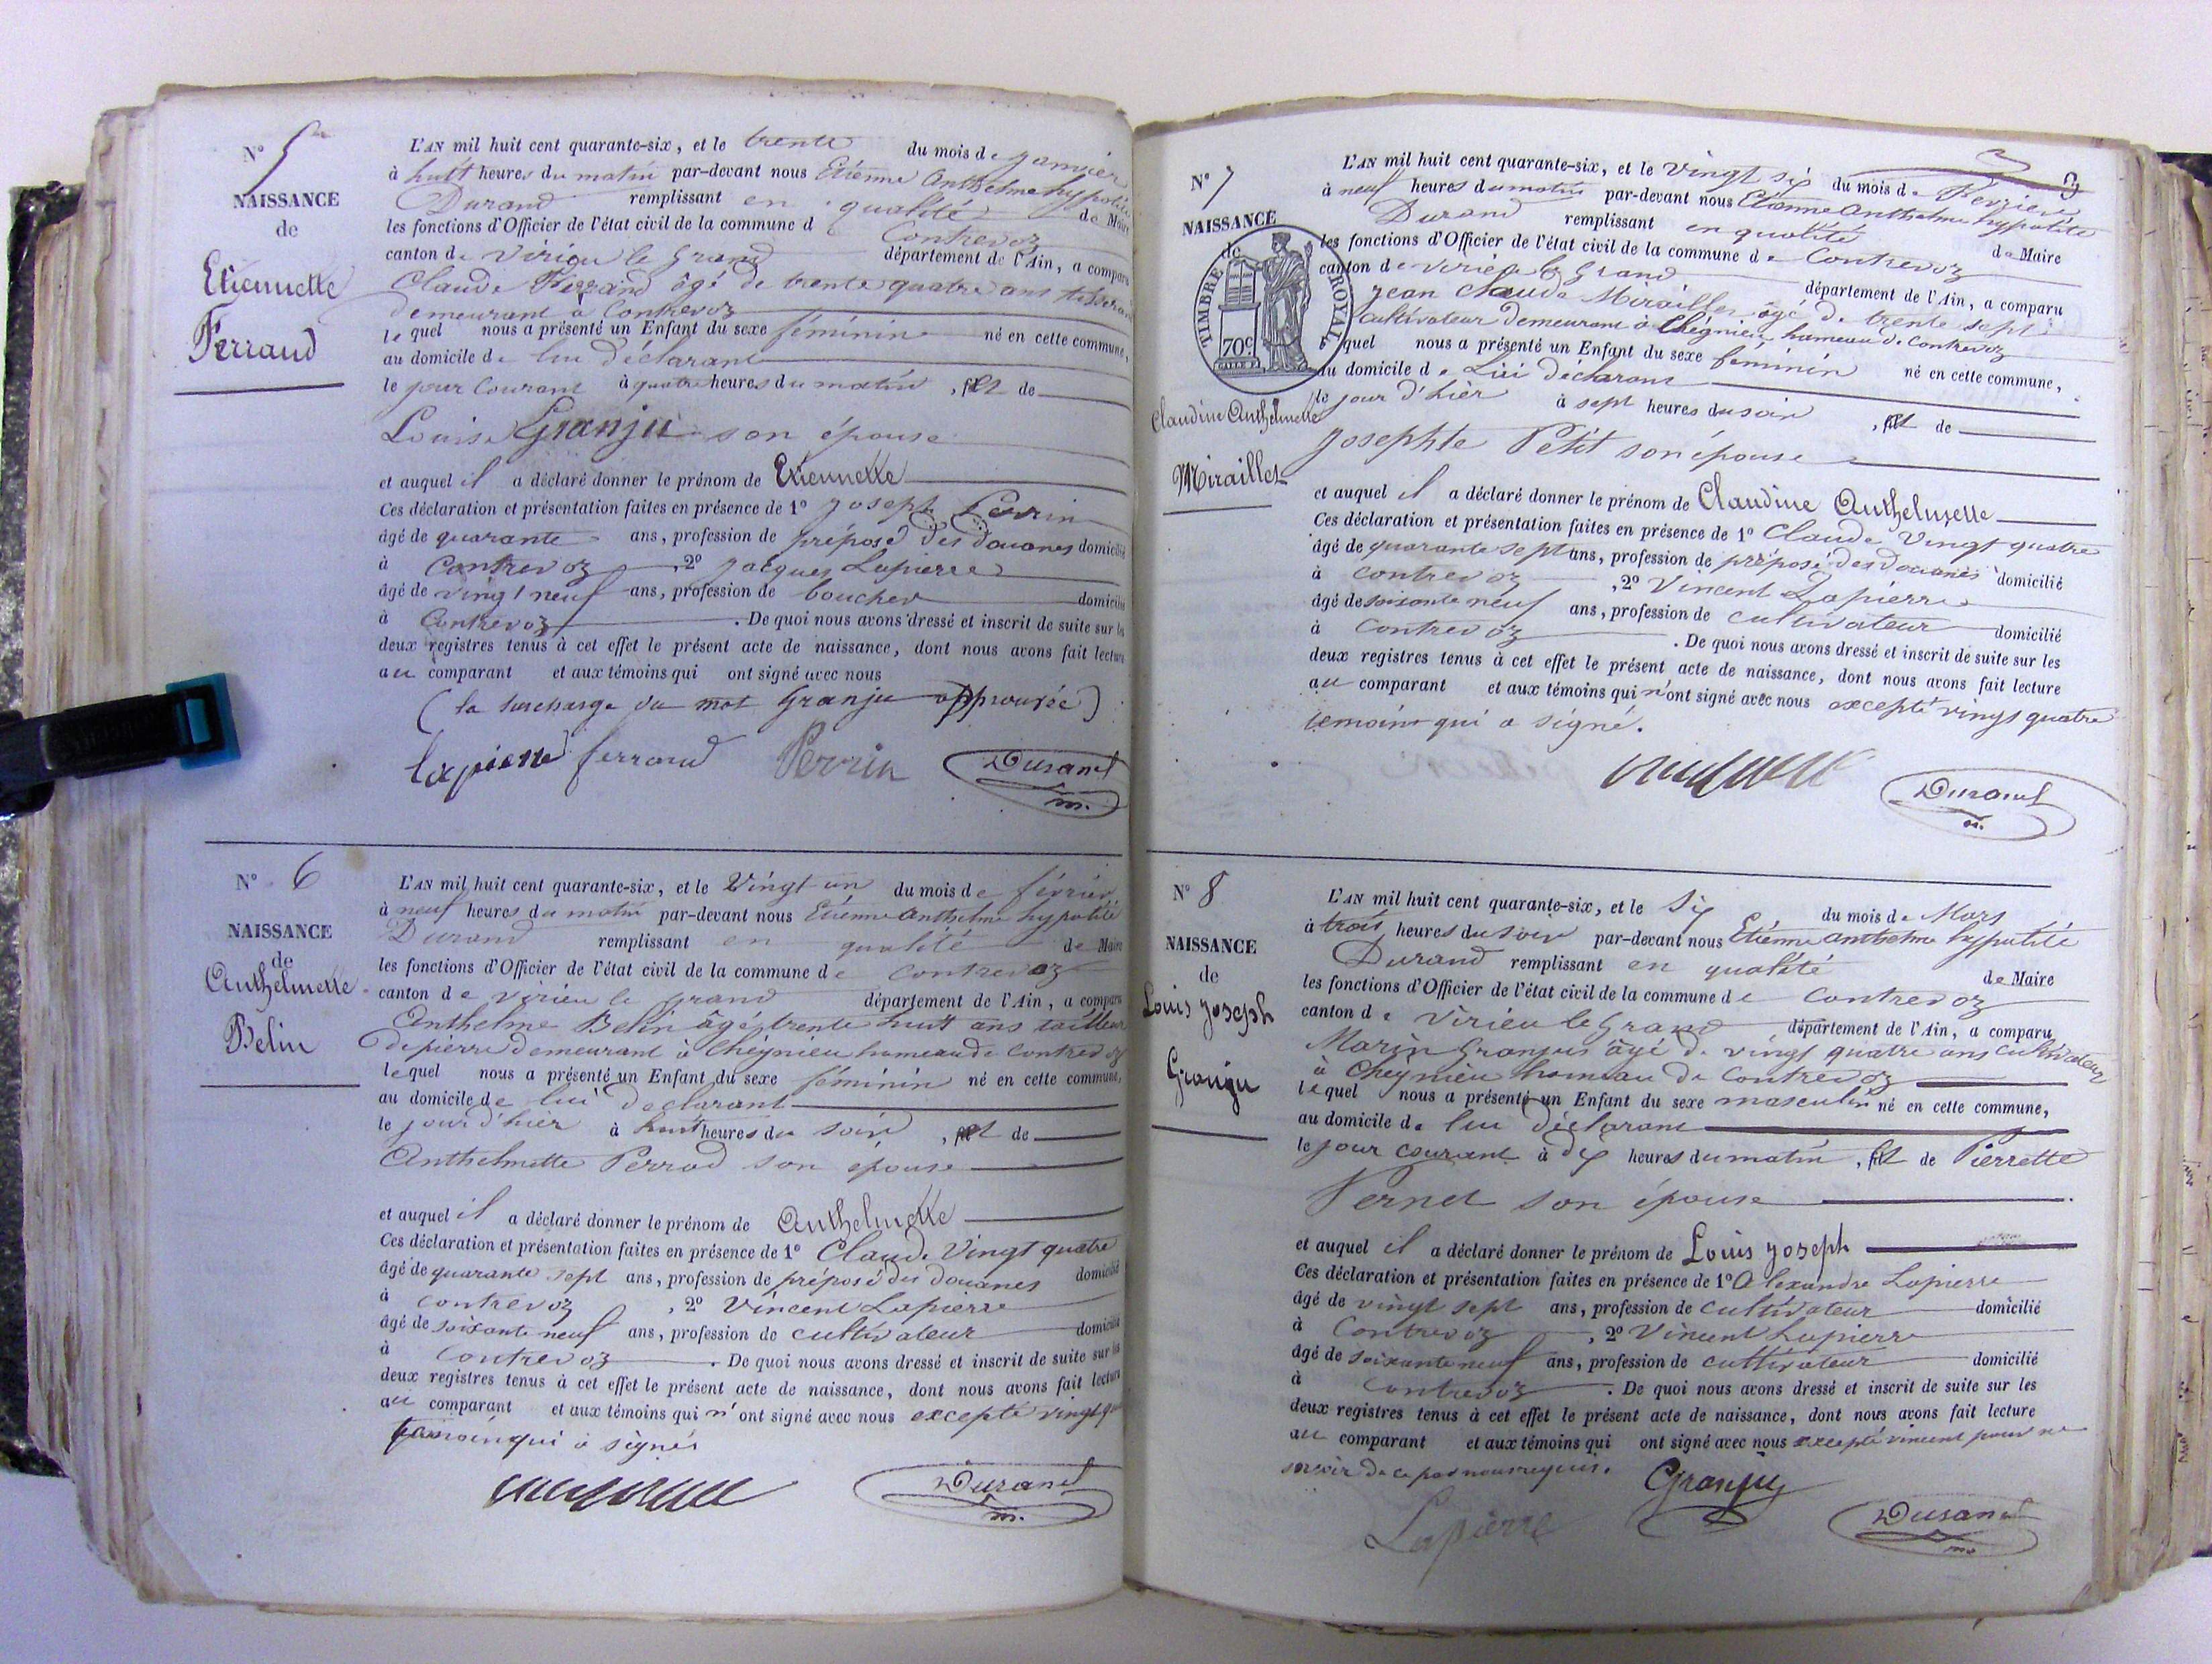 N° 5
NAISSANCE
de
Etiennette
Ferrand
L'AN mil huit cent quarante-six, et le trente du mois de janvier
à huit heures du matin par-devant nous Etienne Anthelme hypolite
Durand remplissant en qualité de Maire
les fonctions d'Officier de l'état civil de la commune d Contrevoz
canton de virieu le grand département de l'Ain, a comparu
Claude Ferrand âgé de trente quatre ans tisseran
demeurant à Contrevoz
lequel nous a présenté un Enfant du sexe féminin né en cette commune,
au domicile de lui déclarant
le jour courant à quatre heures du matin, et de
Louise Granju son épouse
et auquel il a déclaré donner le prénom de Etiennette
Ces déclaration et présentation faites en présence de 1° joseph Perrin
âgé de quarante ans, profession de préposé des douanes domicilié
à Contrevoz, 2° jacques Lapierre
âgé de vingt neuf ans, profession de boucher domicilié
à Contrevoz. De quoi nous avons dressé et inscrit de suite sur les
deux registres tenus à cet effet le présent acte de naissance, dont nous avons fait lecture
au comparant et aux témoins qui ont signé avec nous
(la surcharge du mot Granju approuvée)
lapierre ferrand Perrin Durand
m.
N° 6
NAISSANCE
de
Anthelmette
Belin
L'AN mil huit cent quarante-six, et le Vingt un du mois de février
à neuf heures du matin par-devant nous Etienne Anthelme hypolite
Durand remplissant en qualité de Maire
les fonctions d'Officier de l'état civil de la commune de Contrevoz
canton de virieu le grand département de l'Ain, a comparu
Anthelme Belin âgé trente huit ans tailleur
de pierre demeurant à Cheignieu hameau de Contrevoz
lequel nous a présenté un Enfant du sexe féminin né en cette commune,
au domicile de lui déclarant
le jour d'hier à huit heures du soir, et de
Anthelmette Perrod son épouse
et auquel il a déclaré donner le prénom de Anthelmette
Ces déclaration et présentation faites en présence de 1° Claude Vingt quatre
âgé de quarante sept ans, profession de préposé des douanes domicilié
à contrevoz, 2° Vincent Lapierre
âgé de soixante neuf ans, profession de cultivateur domicilié
à contrevoz. De quoi nous avons dressé et inscrit de suite sur les
deux registres tenus à cet effet le présent acte de naissance, dont nous avons fait lecture
au comparant et aux témoins qui n'ont signé avec nous excepté vingt
témoin qui a signé
Durand
m.
3
N° 7
NAISSANCE
de
TIMBRE ROYAL
70c
Claudine Anthelmette
Miraillet
L'AN mil huit cent quarante-six, et le vingt six du mois de Fevrier
à neuf heures du matin par-devant nous Etienne Anthelme hypolite
Durand remplissant en qualité de Maire
les fonctions d'Officier de l'état civil de la commune de Contrevoz
canton de virieu le grand département de l'Ain, a comparu
jean claude Miraillet âgé de trente sept
cultivateur demeurant à Cheignieu hameau de Contrevoz
lequel nous a présenté un Enfant du sexe féminin né en cette commune,
au domicile de Lui déclarant
le jour d'hier à sept heures du soir, et de
josephte Petit son épouse
et auquel il a déclaré donner le prénom de Claudine Anthelmette
Ces déclaration et présentation faites en présence de 1° Claude Vingt quatre
âgé de quarante sept ans, profession de préposé des douanes domicilié
à contrevoz, 2° Vincent Lapierre
âgé de soixante neuf ans, profession de cultivateur domicilié
à contrevoz. De quoi nous avons dressé et inscrit de suite sur les
deux registres tenus à cet effet le présent acte de naissance, dont nous avons fait lecture
au comparant et aux témoins qui n'ont signé avec nous excepté vingt quatre
témoin qui a signé.
Durand
m.
N° 8
NAISSANCE
de
Louis joseph
Granju
L'AN mil huit cent quarante-six, et le Six du mois de Mars
à trois heures du soir par-devant nous Etienne anthelme hypolite
Durand remplissant en qualité de Maire
les fonctions d'Officier de l'état civil de la commune de Contrevoz
canton de Virieu le Grand département de l'Ain, a comparu
Marin Granju âgé de vingt quatre ans cultivateur
à Cheynieu hameau de Contrevoz
lequel nous a présenté un Enfant du sexe masculin né en cette commune,
au domicile de lui déclarant
le jour courant à dix heures du matin, et de Pierrette
Pernet son épouse
et auquel il a déclaré donner le prénom de Louis joseph
Ces déclaration et présentation faites en présence de 1° Alexandre Lapierre
âgé de vingt sept ans, profession de cultivateur domicilié
à Contrevoz, 2° Vincent Lapierre
âgé de soixante neuf ans, profession de cultivateur domicilié
à contrevoz. De quoi nous avons dressé et inscrit de suite sur les
deux registres tenus à cet effet le présent acte de naissance, dont nous avons fait lecture
au comparant et aux témoins qui ont signé avec nous excepté vincent pour ne
savoir de ce par nous requis. Granju
Lapierre Durand
m.